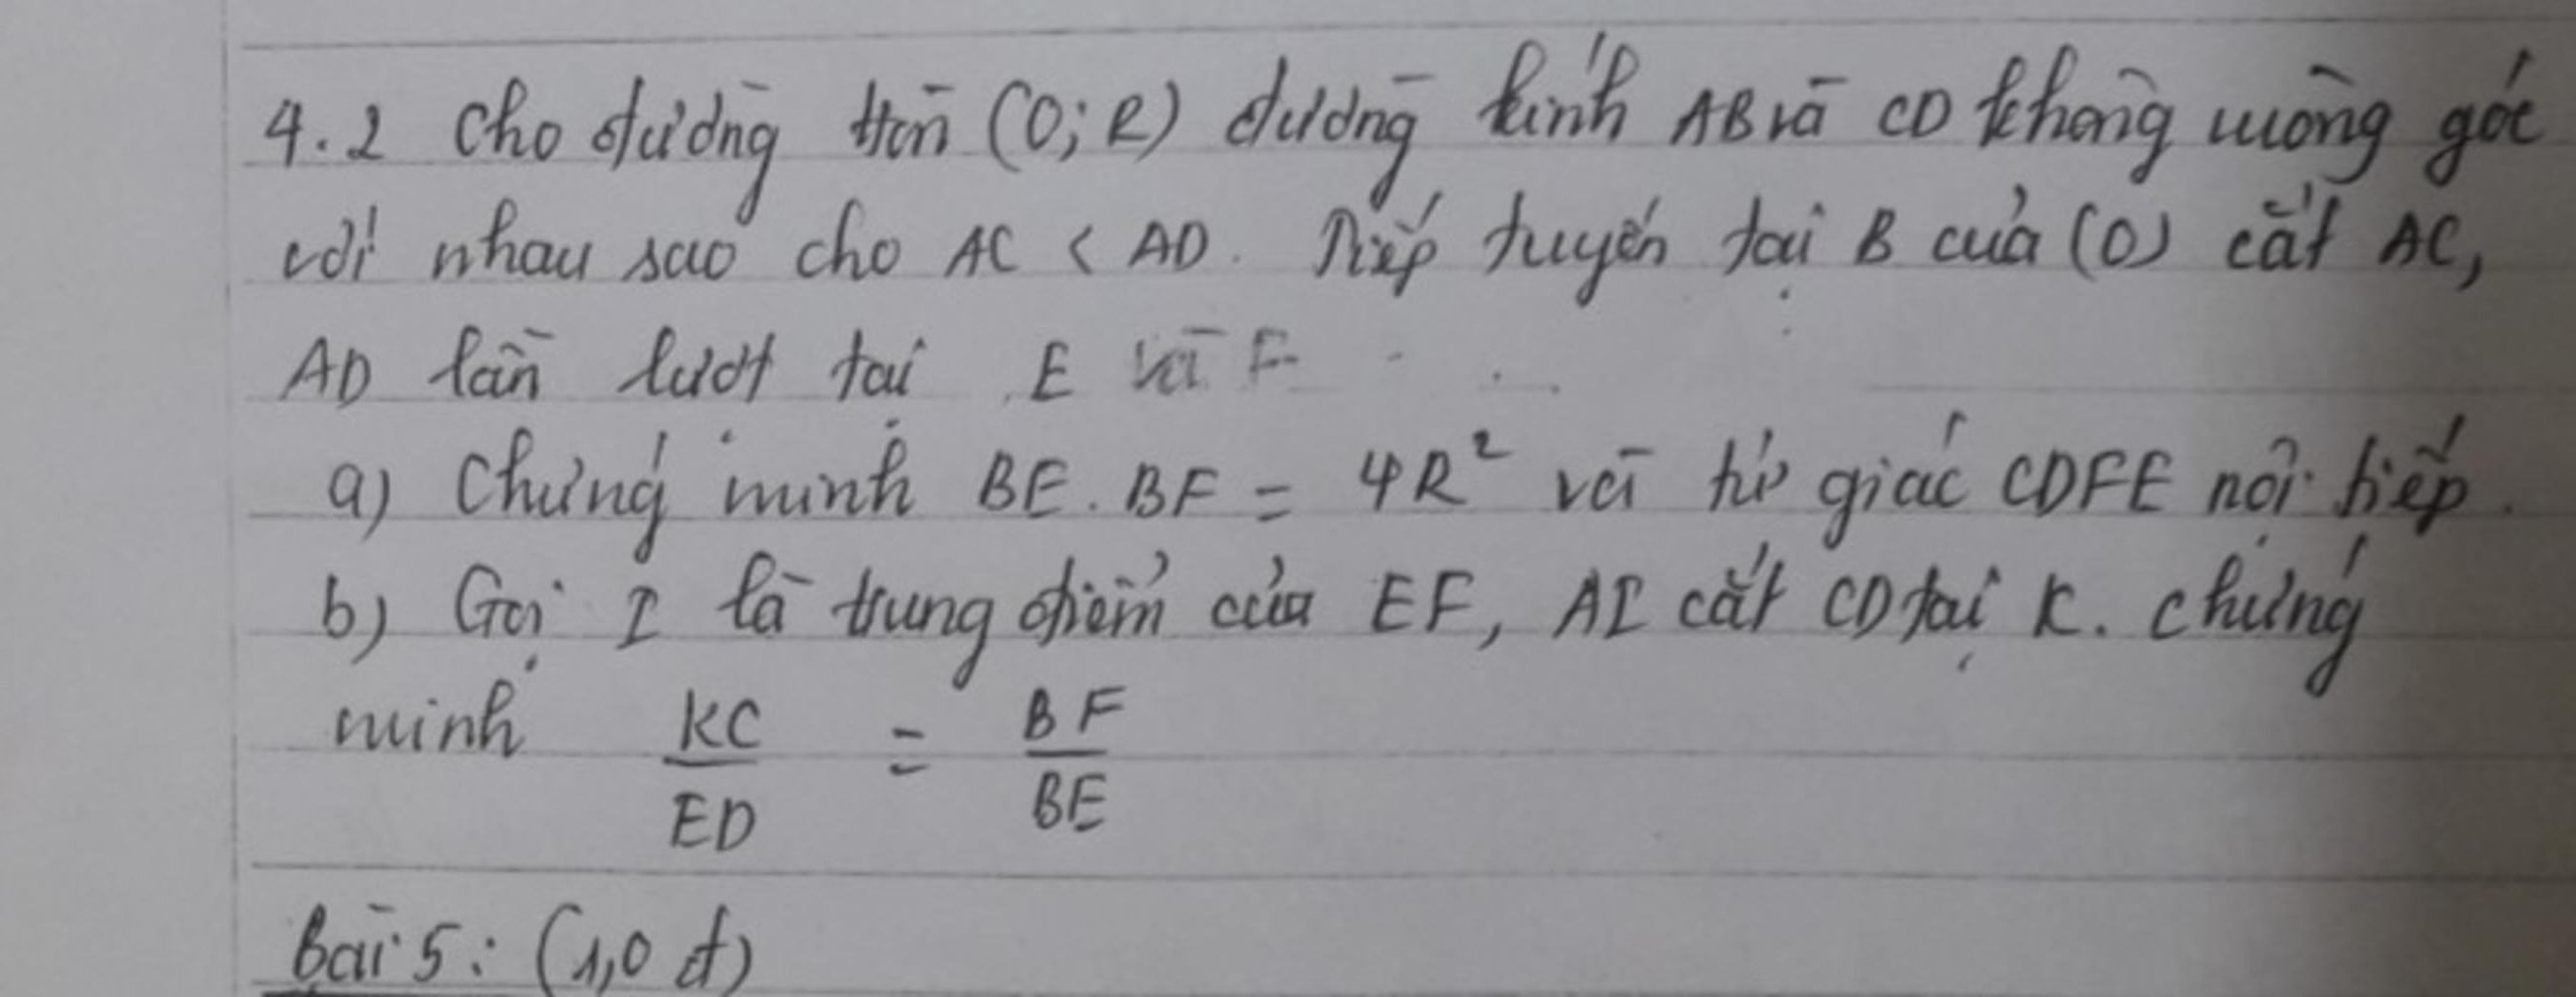 4.2 Cho đường tròn (O; R) đường kính AB và CD không vuông góc
với nhau sao cho AC < AD. Tiếp tuyến tại B của (O) cắt AC,
AD lần lượt tại E và F
a) Chứng minh BE . BF = 4R² và tứ giác CDFE nội tiếp.
b) Gọi I là trung điểm của EF, AI cắt CD tại K. chứng
minh KC/ED = BF/BE
Bài 5: (1,0 đ)